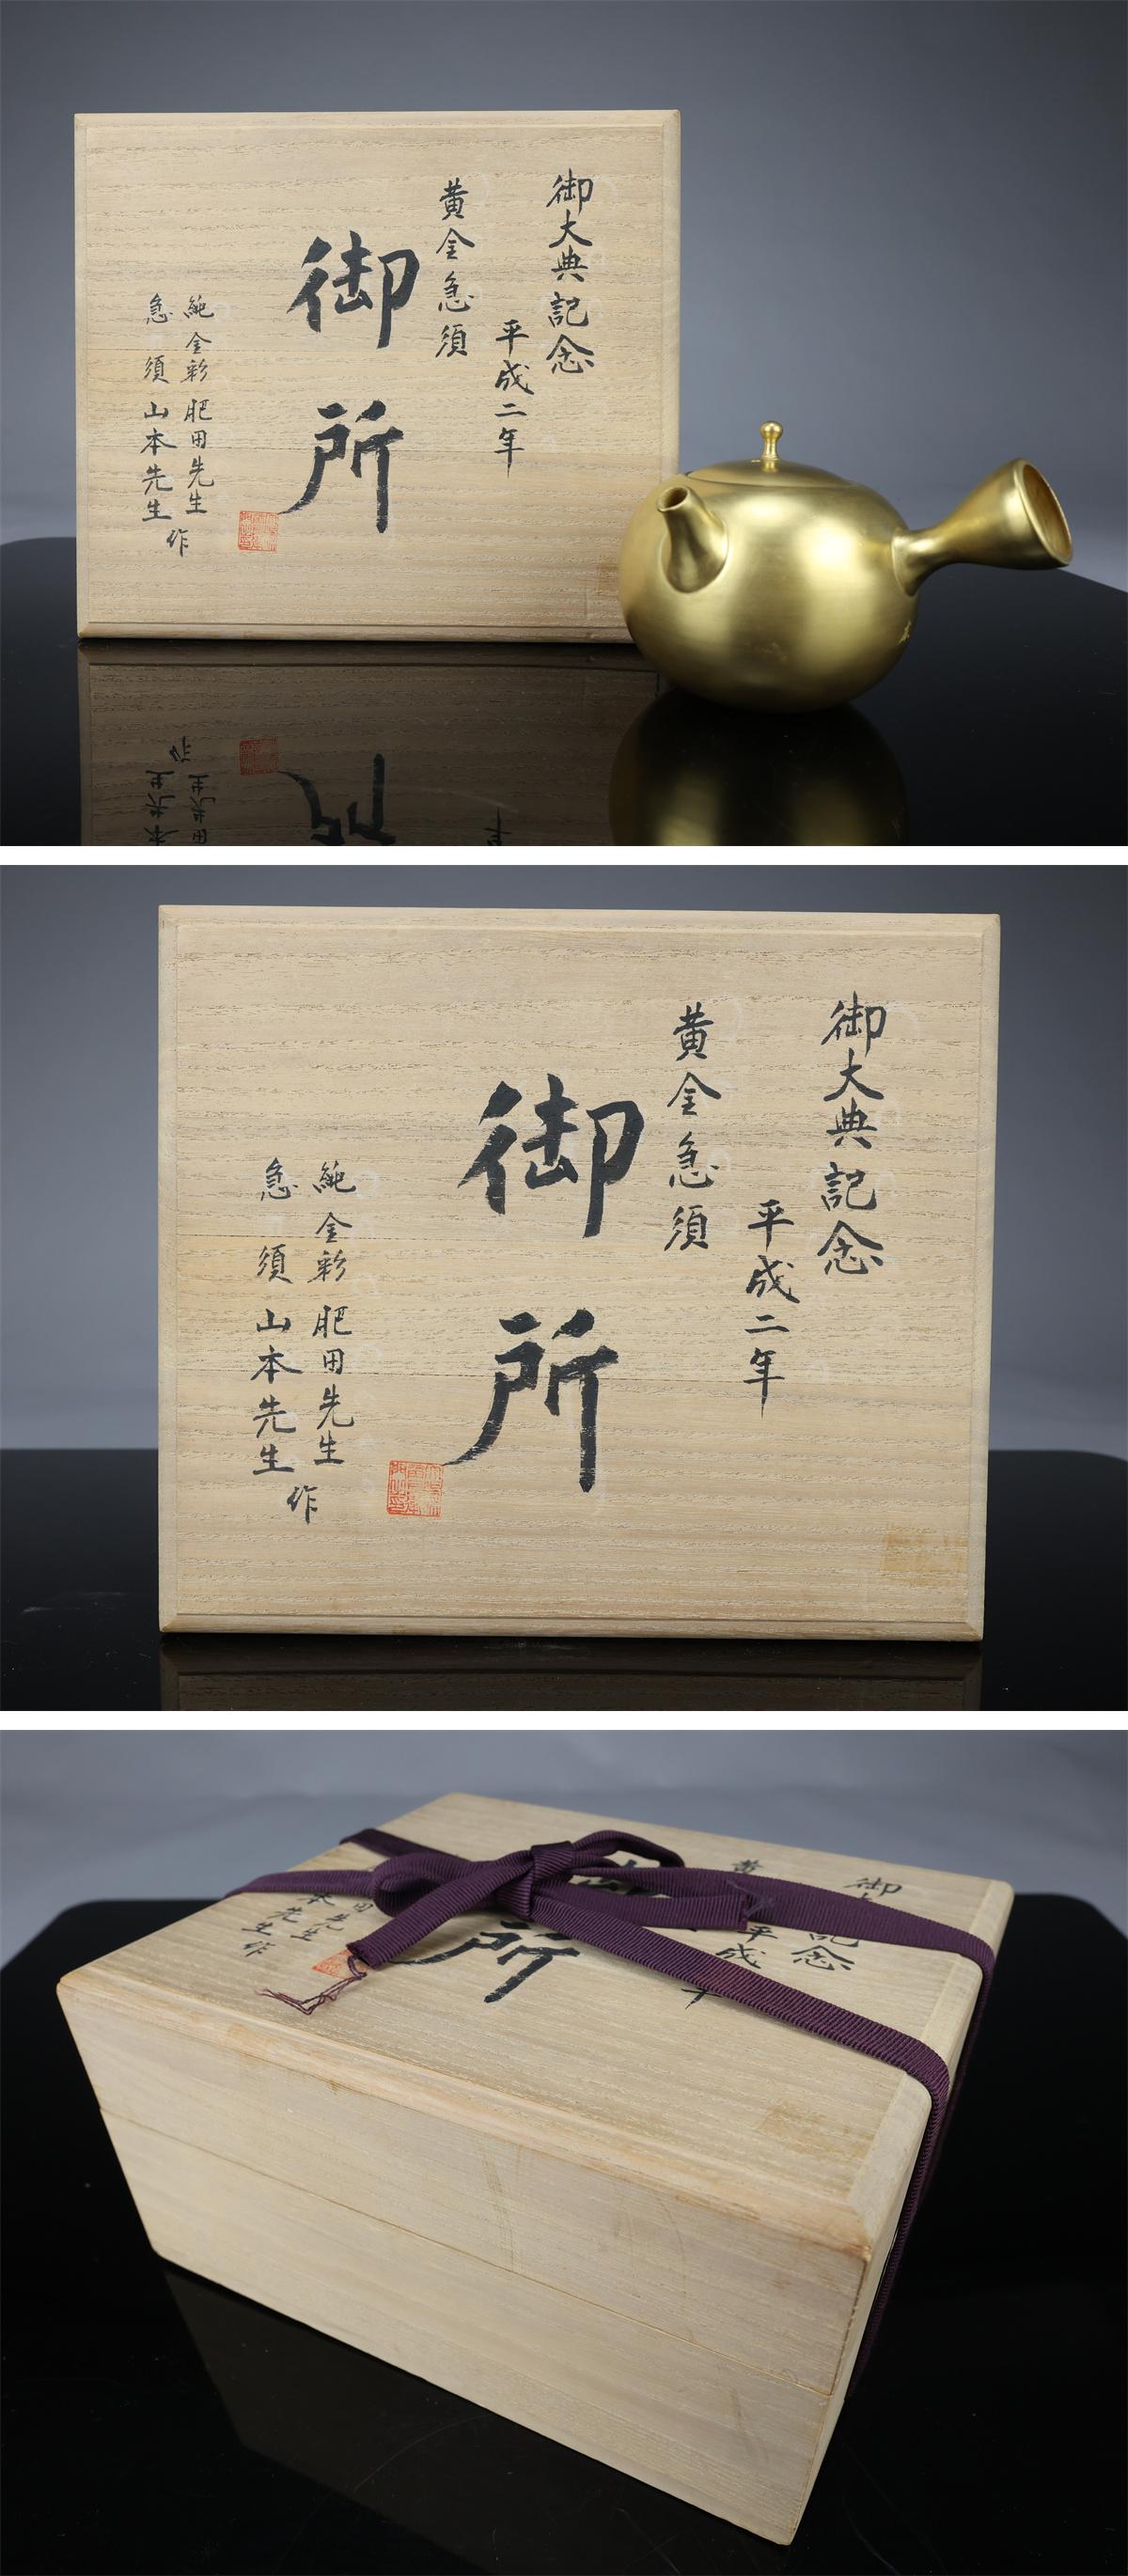 御大典記念
平成二年
黄金急須
御所
純金彩 肥田先生
急須 山本先生
作
御大典記念
平成二年
黄金急須
御所
純金彩 肥田先生
急須 山本先生
作
御
記念
平成
黄
所
田先生
本先生
作